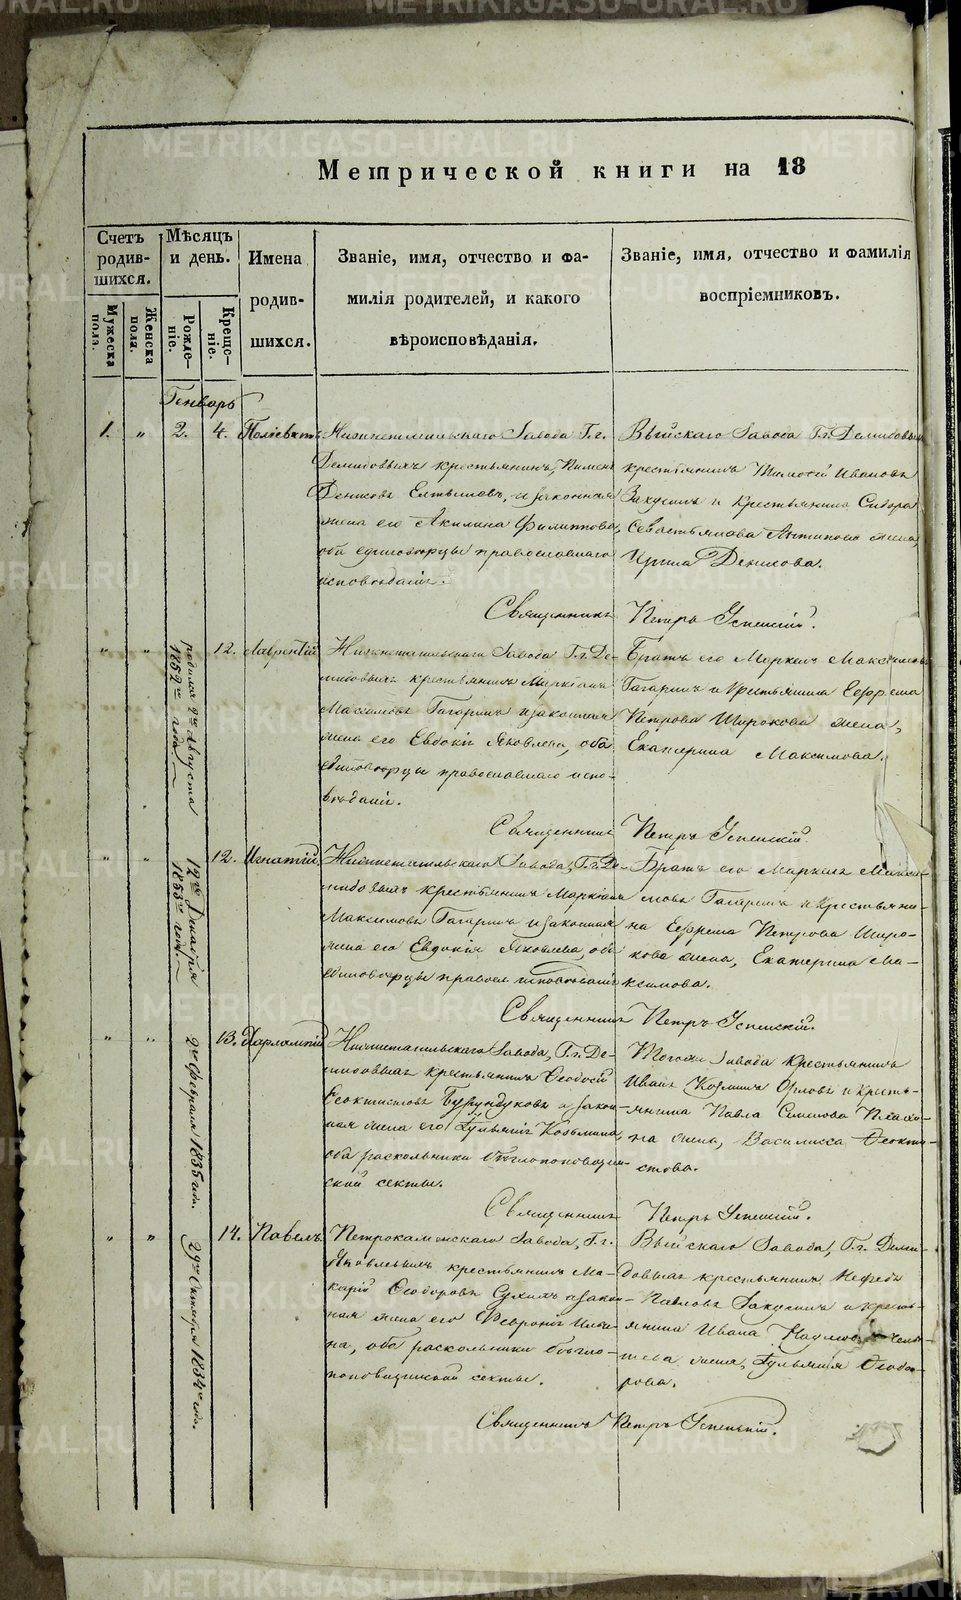 METRIKI.GASO-URAL.RU
Метрической книги на 18
Счетъ родив-шихся.
Мужеска пола.
Женска пола.
Мѣсяцъ и день.
Рожде-ніе.
Креще-ніе.
Имена родив-шихся.
Званіе, имя, отчество и фа-
милія родителей, и какого
вѣроисповѣданія.
Званіе, имя, отчество и фамилія
воспріемниковъ.
Генварь
1. " 2. 4.
Завода Г.г.
Демидовыхъ крестьянинъ,
Денисовъ и законная
жена его Акилина Филиппова,
оба единоверцы православнаго
исповѣданія.
Выйскаго Завода Г.г. Демидовыхъ
крестьянинъ Тимофей Ивановъ
и крестьянина Сидора
Севастьянова Антипова жена,
Ирина Денисова.
Священникъ Петръ Успенскій.
" " родился 2го Августа 1852го года 12. Лаврентій
Нижнетагильскаго Завода Г.г. Де-
мидовыхъ крестьянинъ Маркіанъ
Максимовъ Гагаринъ и законная
жена его Евдокія Яковлева, оба
единоверцы православнаго испо-
вѣданія.
Братъ его Маркелъ Максимовъ
Гагаринъ и крестьянина Ефрема
Петрова Широкова жена,
Екатерина Максимова.
Священникъ Петръ Успенскій.
" " 12го Декабря 1853го года 12. Игнатій
Нижнетагильскаго Завода, Г.г. Де-
мидовыхъ крестьянинъ Маркіанъ
Максимовъ Гагаринъ и законная
жена его Евдокія Яковлева, оба
единоверцы правосл. исповѣданія
Братъ его Маркелъ Макси-
мовъ Гагаринъ и крестьяни-
на Ефрема Петрова Широ-
кова жена, Екатерина Ма-
ксимова.
Священникъ Петръ Успенскій.
" " 2го февраля 1835 года. 13. Харлампій
Нижнетагильскаго Завода, Г.г. Де-
мидовыхъ крестьянинъ Феодосій
Феоктистовъ Бурундуковъ и закон-
ная жена его Гульянія Козьмина,
оба раскольники беглопоповщин-
ской секты.
Тогожъ Завода крестьянинъ
Иванъ Козминъ Орловъ и кресть-
янина Павла Семенова
на жена, Василисса Феокти-
стова.
Священникъ Петръ Успенскій.
" " 29го Октября 1834го года 14. Павелъ
Петрокаменскаго Завода, Г.г.
Яковлевыхъ крестьянинъ Ма-
карій Феодоровъ Сухихъ и закон-
ная жена его Феврония Ильи-
на, оба раскольники бегло-
поповщинской секты.
Выйскаго Завода, Г.г. Деми-
довыхъ крестьянинъ Нефедъ
Павловъ и кресть-
янина Ивана Наумова
жена, Гульянія Феодо-
рова.
Священникъ Петръ Успенскій.